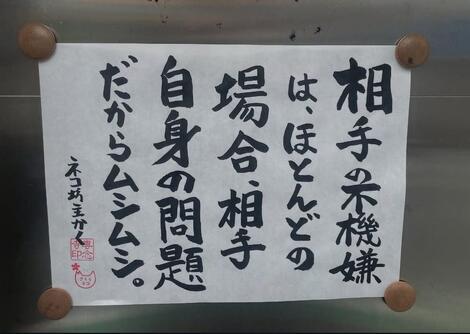 相手の不機嫌
は、ほとんどの
場合、相手
自身の問題
だからムシムシ。
ネコ坊主かく